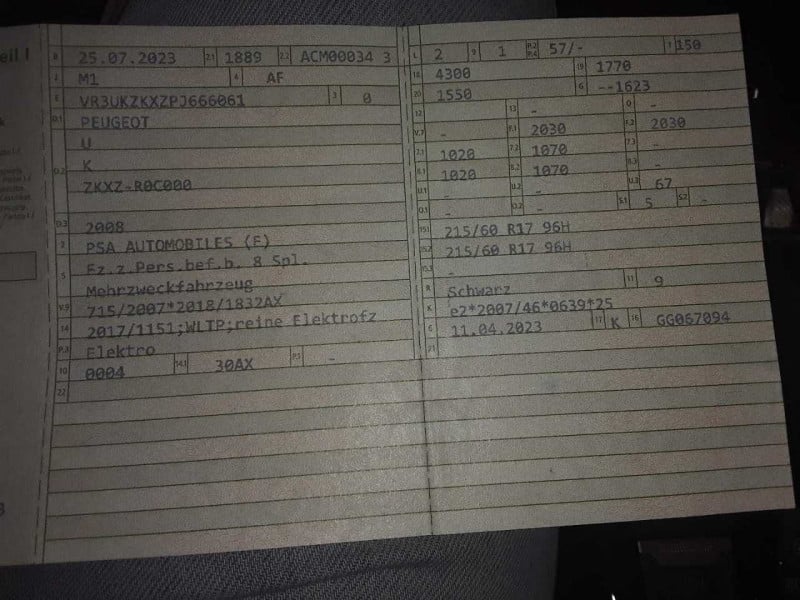 eil I
B 25.07.2023 2.1 1889 2.2 ACM00034 3
J M1 4 AF
E VR3UKZKXZPJ666061 3 0
D.1 PEUGEOT
U
D.2 K
ZKXZ-R0C000
D.3 2008
2 PSA AUTOMOBILES (F)
5 Fz.z.Pers.bef.b. 8 Spl.
Mehrzweckfahrzeug
V.9 715/2007*2018/1832AX
14 2017/1151;WLTP;reine Elektrofz
P.3 Elektro
10 0004 14.1 30AX P.5 -
22
L 2 9 1 P.2 P.4 57/- T 150
18 4300 19 1770
20 1550 G --1623
12 - 13 - Q -
V.7 - F.1 2030 F.2 2030
7.1 1020 7.2 1070 7.3 -
8.1 1020 8.2 1070 8.3 -
U.1 - U.2 - U.3 67
O.1 - O.2 - S.1 5 S.2 -
15.1 215/60 R17 96H
15.2 215/60 R17 96H
15.3 -
R Schwarz 11 9
K e2*2007/46*0639*25
6 11.04.2023 17 K 16 GG067094
21